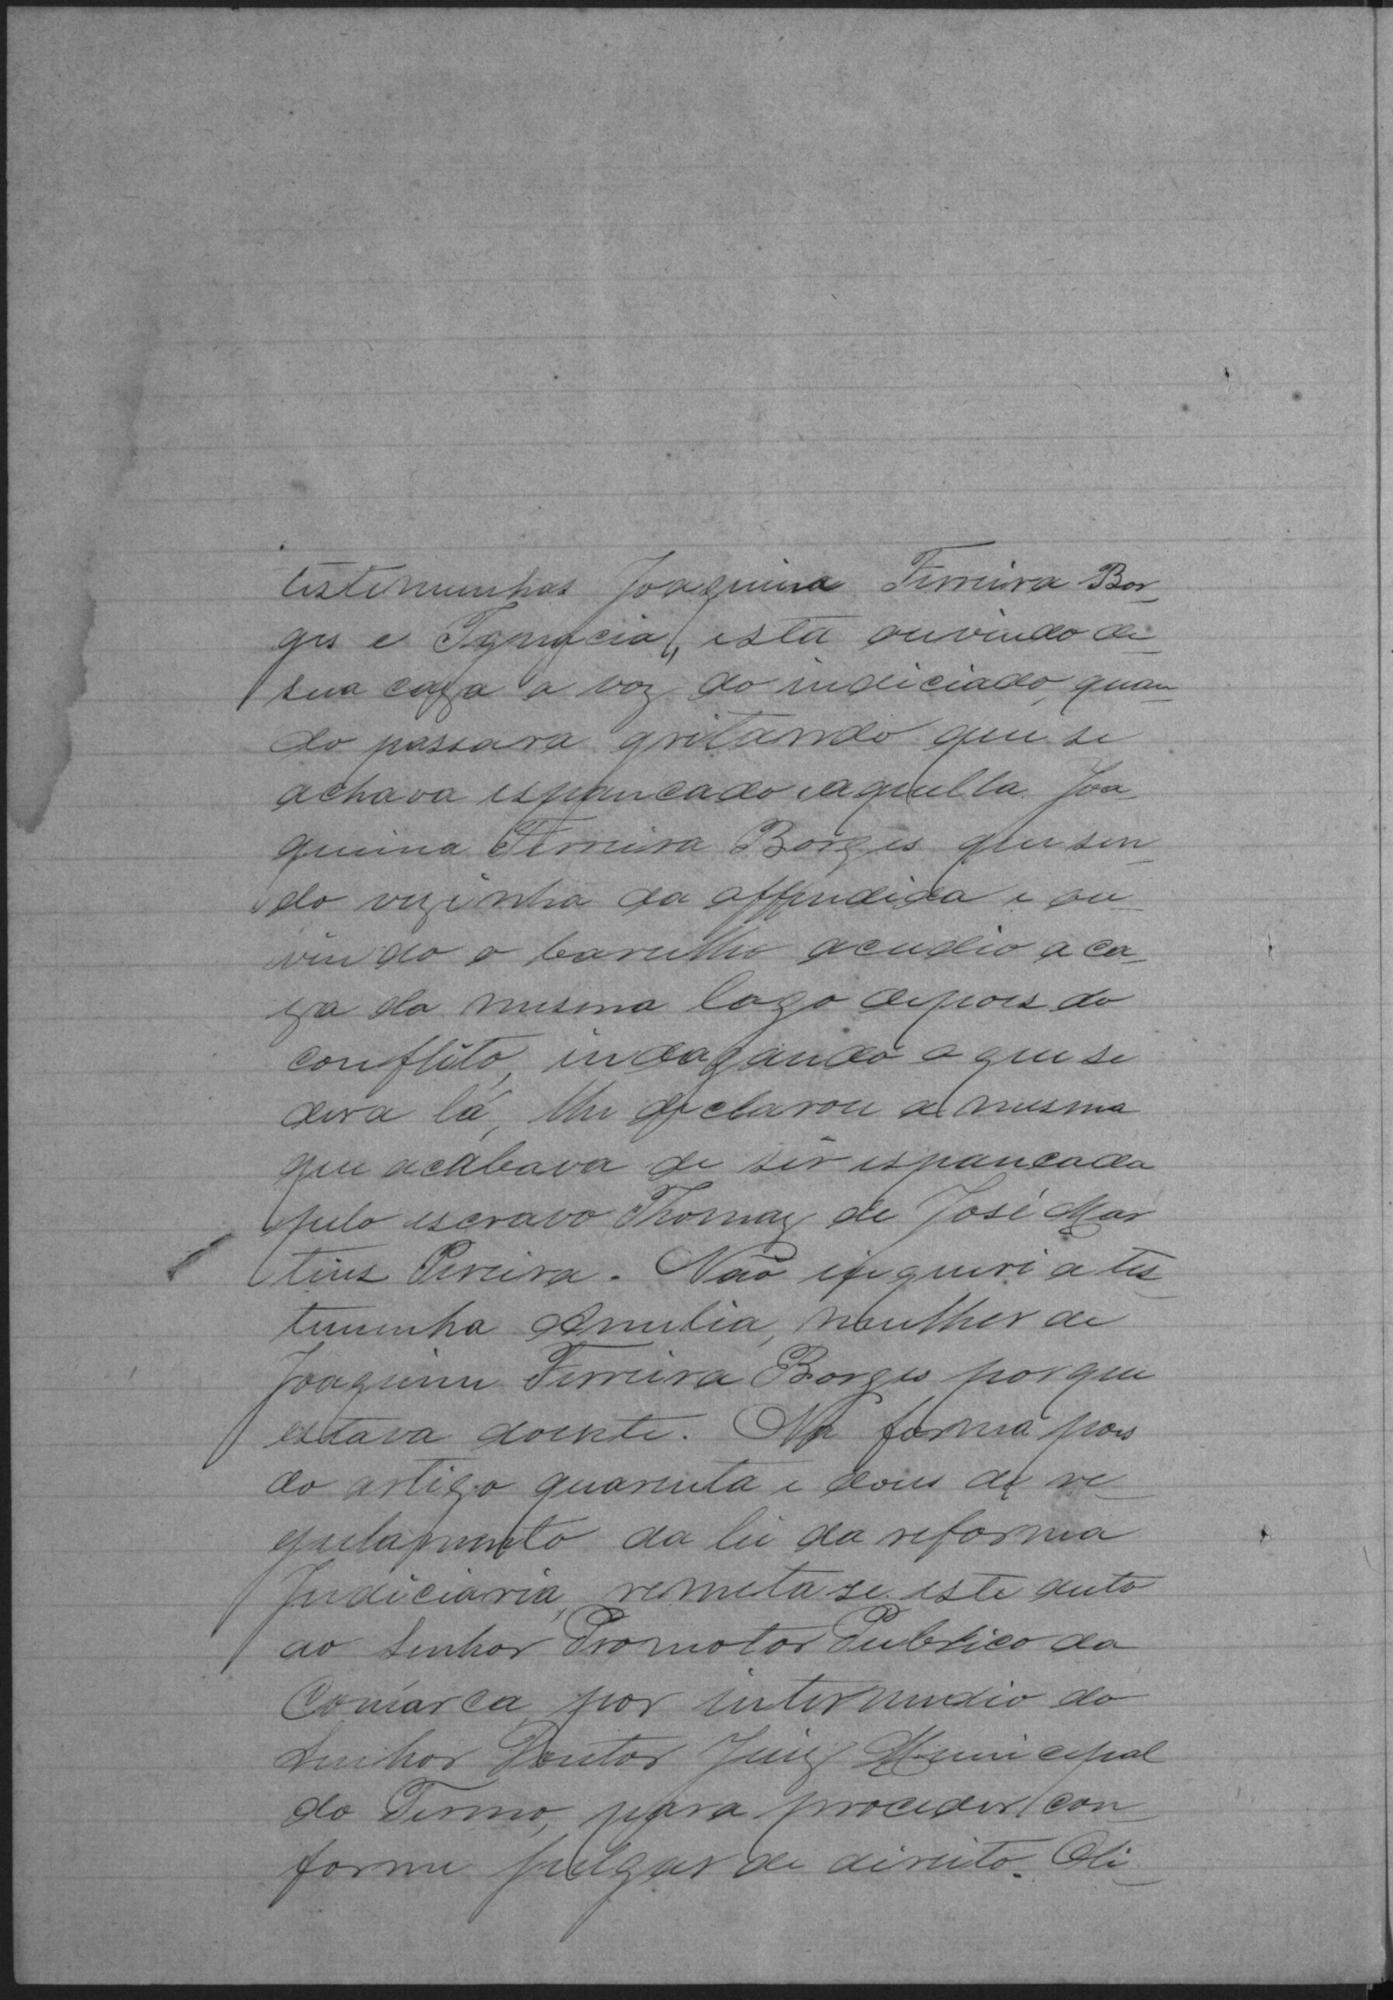 testemunhas Joaquina Ferreira Bor-
ges e Ignacia, esta ouvindo de
sua caza a voz do indiciado, quan-
do passara gritando que se
achava espancado e aquella Joa-
quina Ferreira Borges que sen-
do vezinha da offendida e ou-
vindo o barulho acudio a ca-
za da mesma logo depois do
conflito, indagando o que se
dera lá, lhe declarou a mesma
que acabava de ser espancada
pelo escravo Thomaz de José Mar
tins Pereira. Não inqueri a tes-
temunha Amelia, mulher de
Joaquim Ferreira Borges porque
estava doente. Na forma pois
do artigo quarenta e dous do re-
gulamento da lei da reforma
Judiciaria, remeta se este auto
ao Senhor Promotor Publico da
Comarca, por intermedio do
Senhor Doutor Juiz Municipal
do Termo, para proceder con-
forme julgar de direito. Oli-